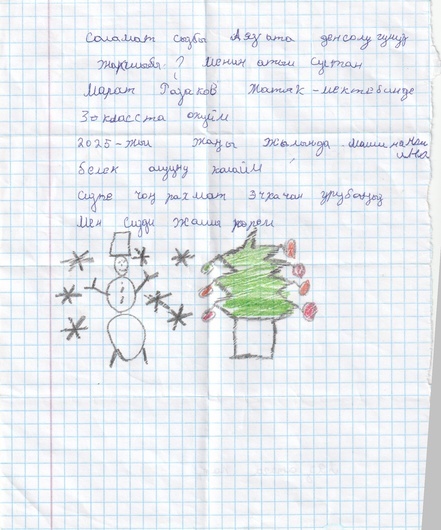 Саламат сызбы Аяз ата ден солугунуз
жакшыбы? Менин атым Султан
Марат Разаков Жатак-мектебинде
3 класста окуйм
2025-жыл жаңы жылында машинаны
белек алууну каалайм
сизге чоң рахмат эчкачан урубаңыз
Мен сизди жакшы көрөм